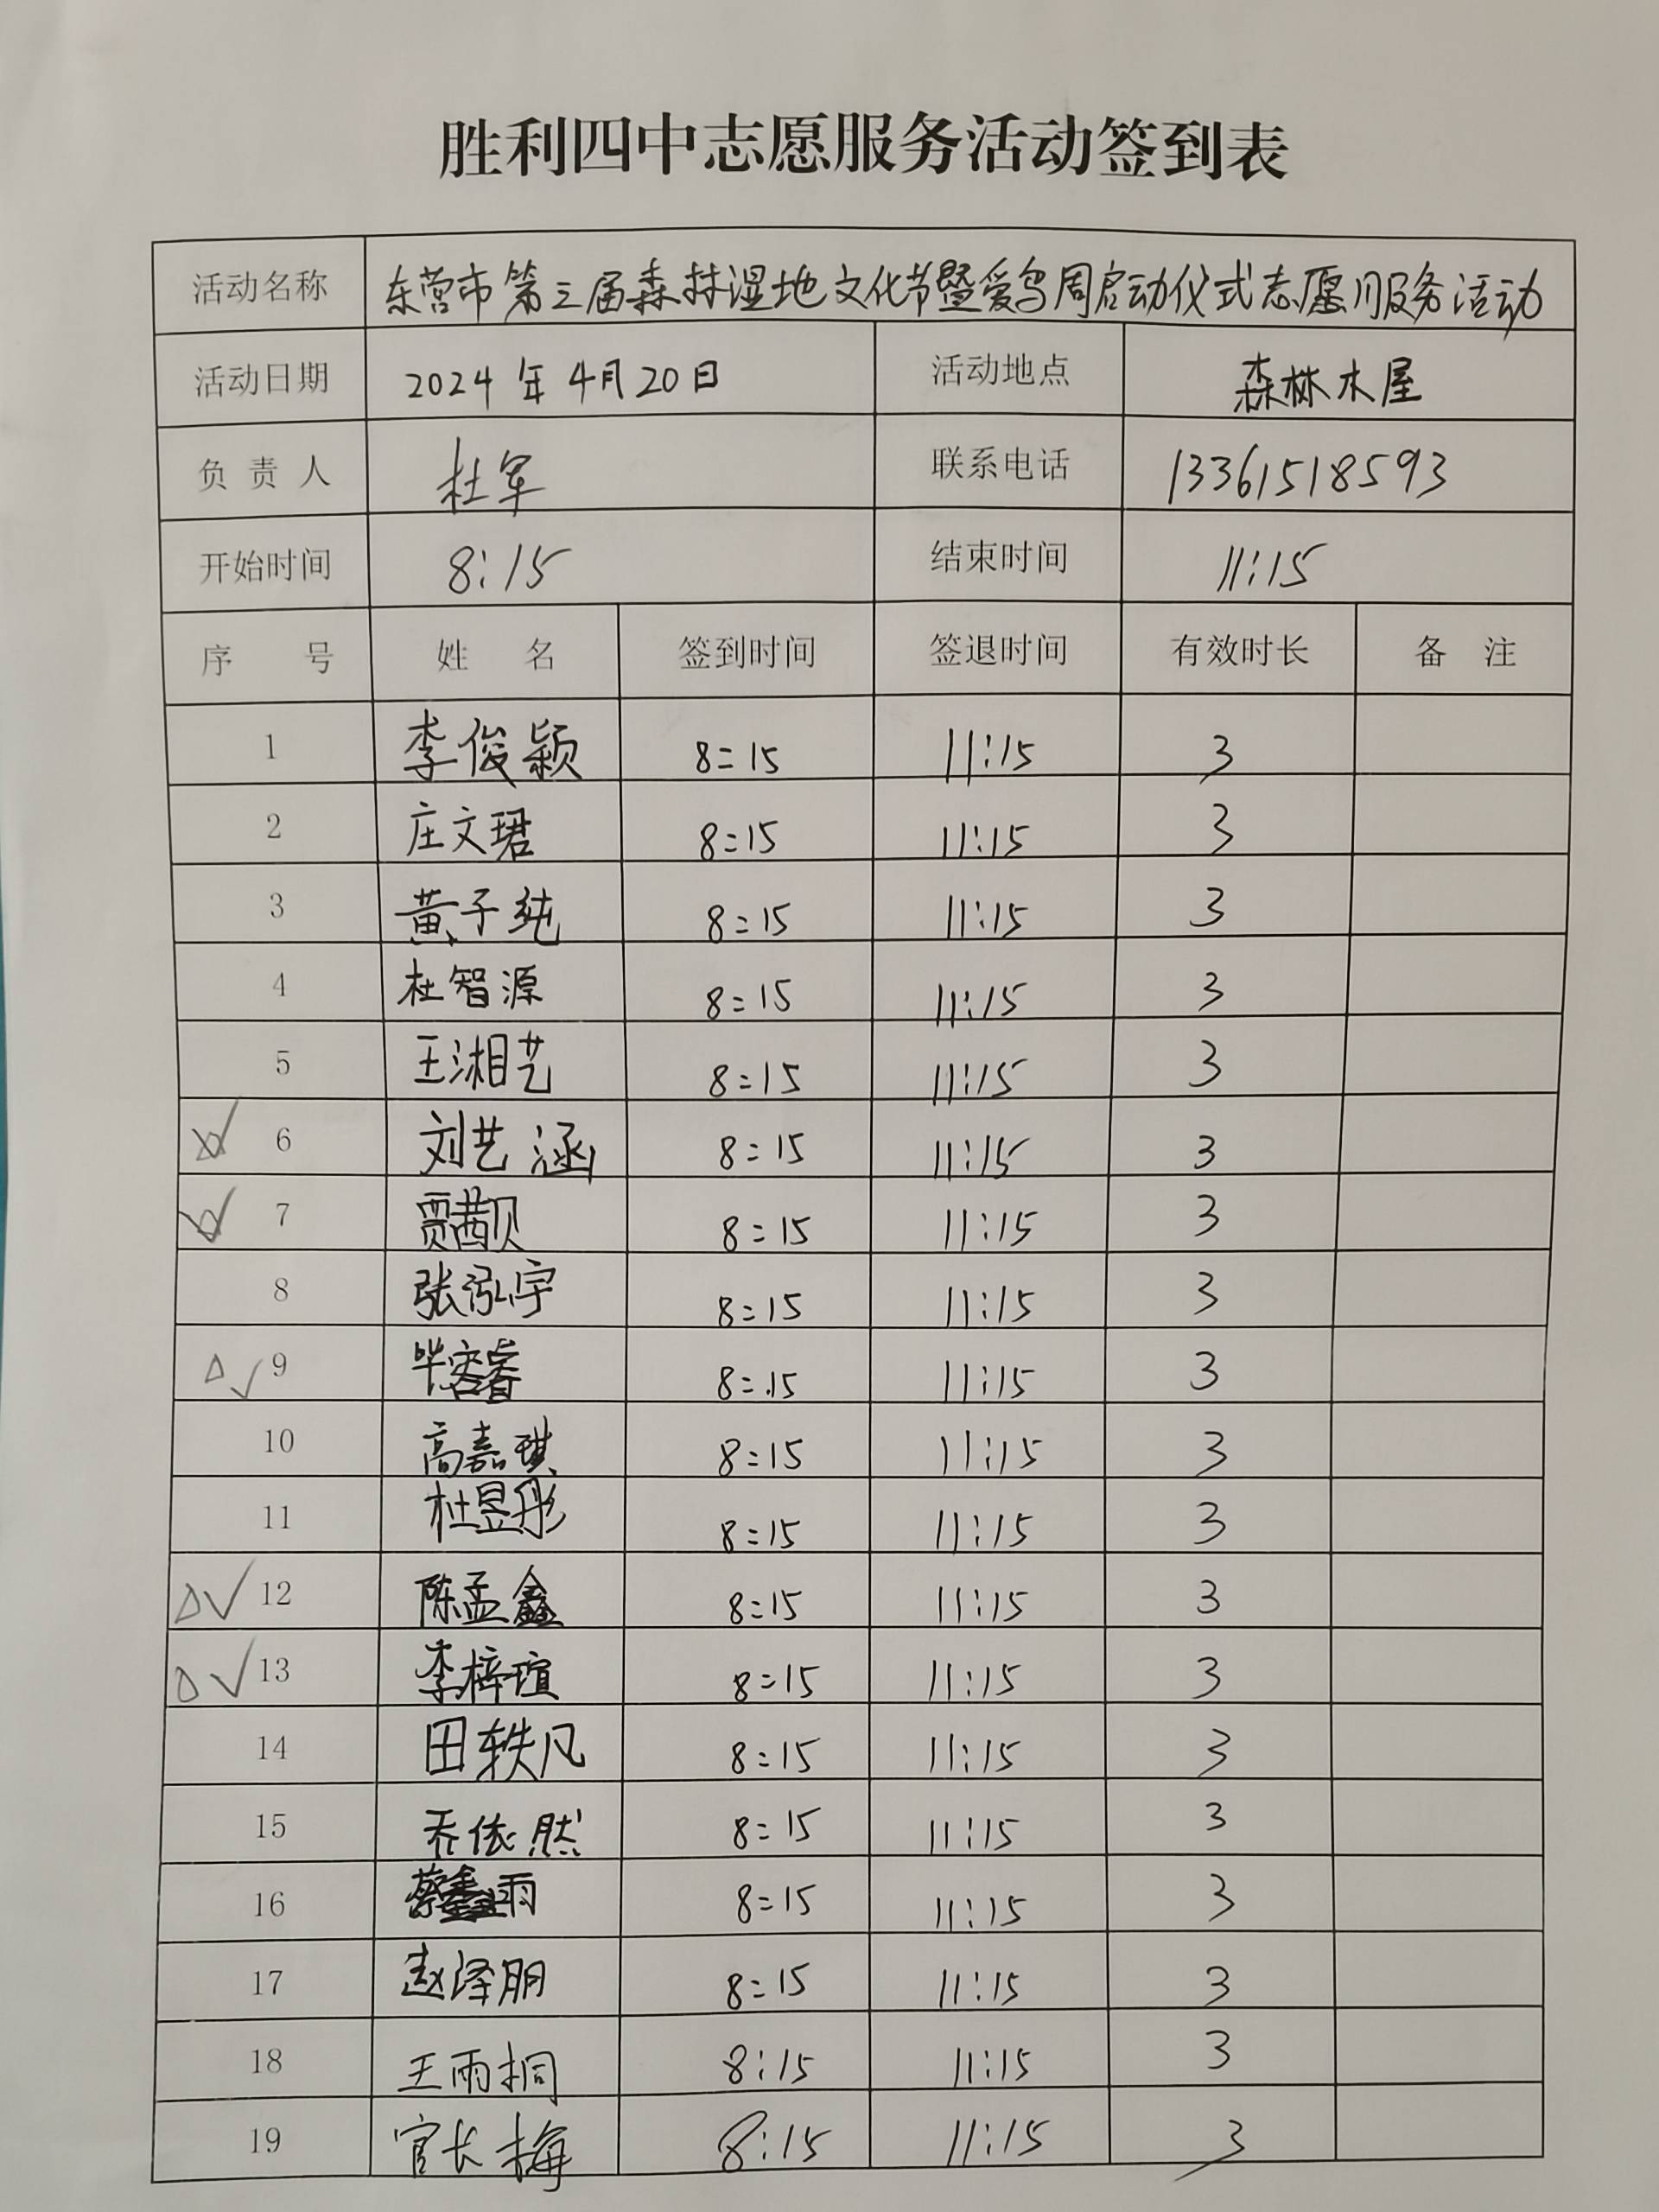 胜利四中志愿服务活动签到表
活动名称 东营市第三届森林湿地文化节暨爱鸟周启动仪式志愿服务活动
活动日期 2024年4月20日 活动地点 森林木屋
负责人 杜军 联系电话 13361518593
开始时间 8:15 结束时间 11:15
序号 姓名 签到时间 签退时间 有效时长 备注
1 李俊颖 8:15 11:15 3
2 庄文珺 8:15 11:15 3
3 黄子纯 8:15 11:15 3
4 杜智源 8:15 11:15 3
5 王湘艺 8:15 11:15 3
6 刘艺涵 8:15 11:15 3
7 贾茜贝 8:15 11:15 3
8 张泓宇 8:15 11:15 3
9 毕容睿 8:15 11:15 3
10 高嘉琪 8:15 11:15 3
11 杜昱彤 8:15 11:15 3
12 陈孟鑫 8:15 11:15 3
13 李梓瑄 8:15 11:15 3
14 田轶凡 8:15 11:15 3
15 乔依然 8:15 11:15 3
16 蔡鑫雨 8:15 11:15 3
17 赵泽朋 8:15 11:15 3
18 王雨桐 8:15 11:15 3
19 官长梅 8:15 11:15 3